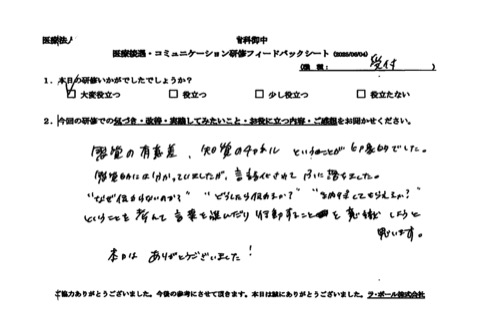 医療法人 歯科御中
医療接遇・コミュニケーション研修フィードバックシート (2025/06/04)
(職 種: 受付 )
1.本日の研修いかがでしたでしょうか?
☑ 大変役立つ □ 役立つ □ 少し役立つ □ 役立たない
2.今回の研修での気づき・改善・実践してみたいこと・お役に立つ内容・ご感想をお聞かせください。
感覚の有意差、知覚のチャネル ということが印象的でした。
感覚的には分かっていましたが、言語化されて 落ちました。
"なぜ伝わらないのか?" "どうしたら伝わるか?"
ということを考えて言葉を選んだり 行動することを意識しようと
思います。
本日は ありがとうございました!
ご協力ありがとうございました。今後の参考にさせて頂きます。本日は誠にありがとうございました。ラ・ポール株式会社